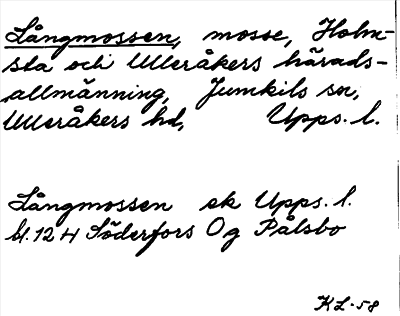 Långmossen, mosse, Holm-
sta och Ulleråkers härads-
allmänning, Jumkils sn,
Ulleråkers hd, Upps. l.
Långmossen ek Upps. l.
bl. 124 Söderfors Og Pålsbo
KL-58